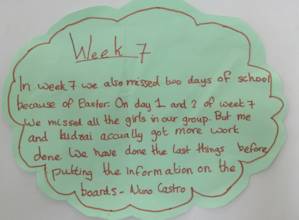 Week 7
In week 7 we also missed two days of school
because of Easter. On day 1 and 2 of week 7
we missed all the girls in our group. But me
and kudzai accually got more work
done. We have done the last things before
putting the information on the
boards - Nuno Castro